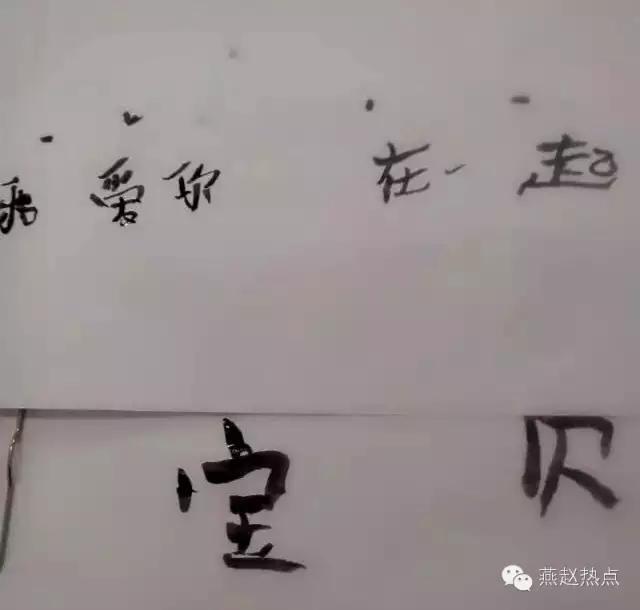 我爱你 在一起
宝 贝
燕赵热点